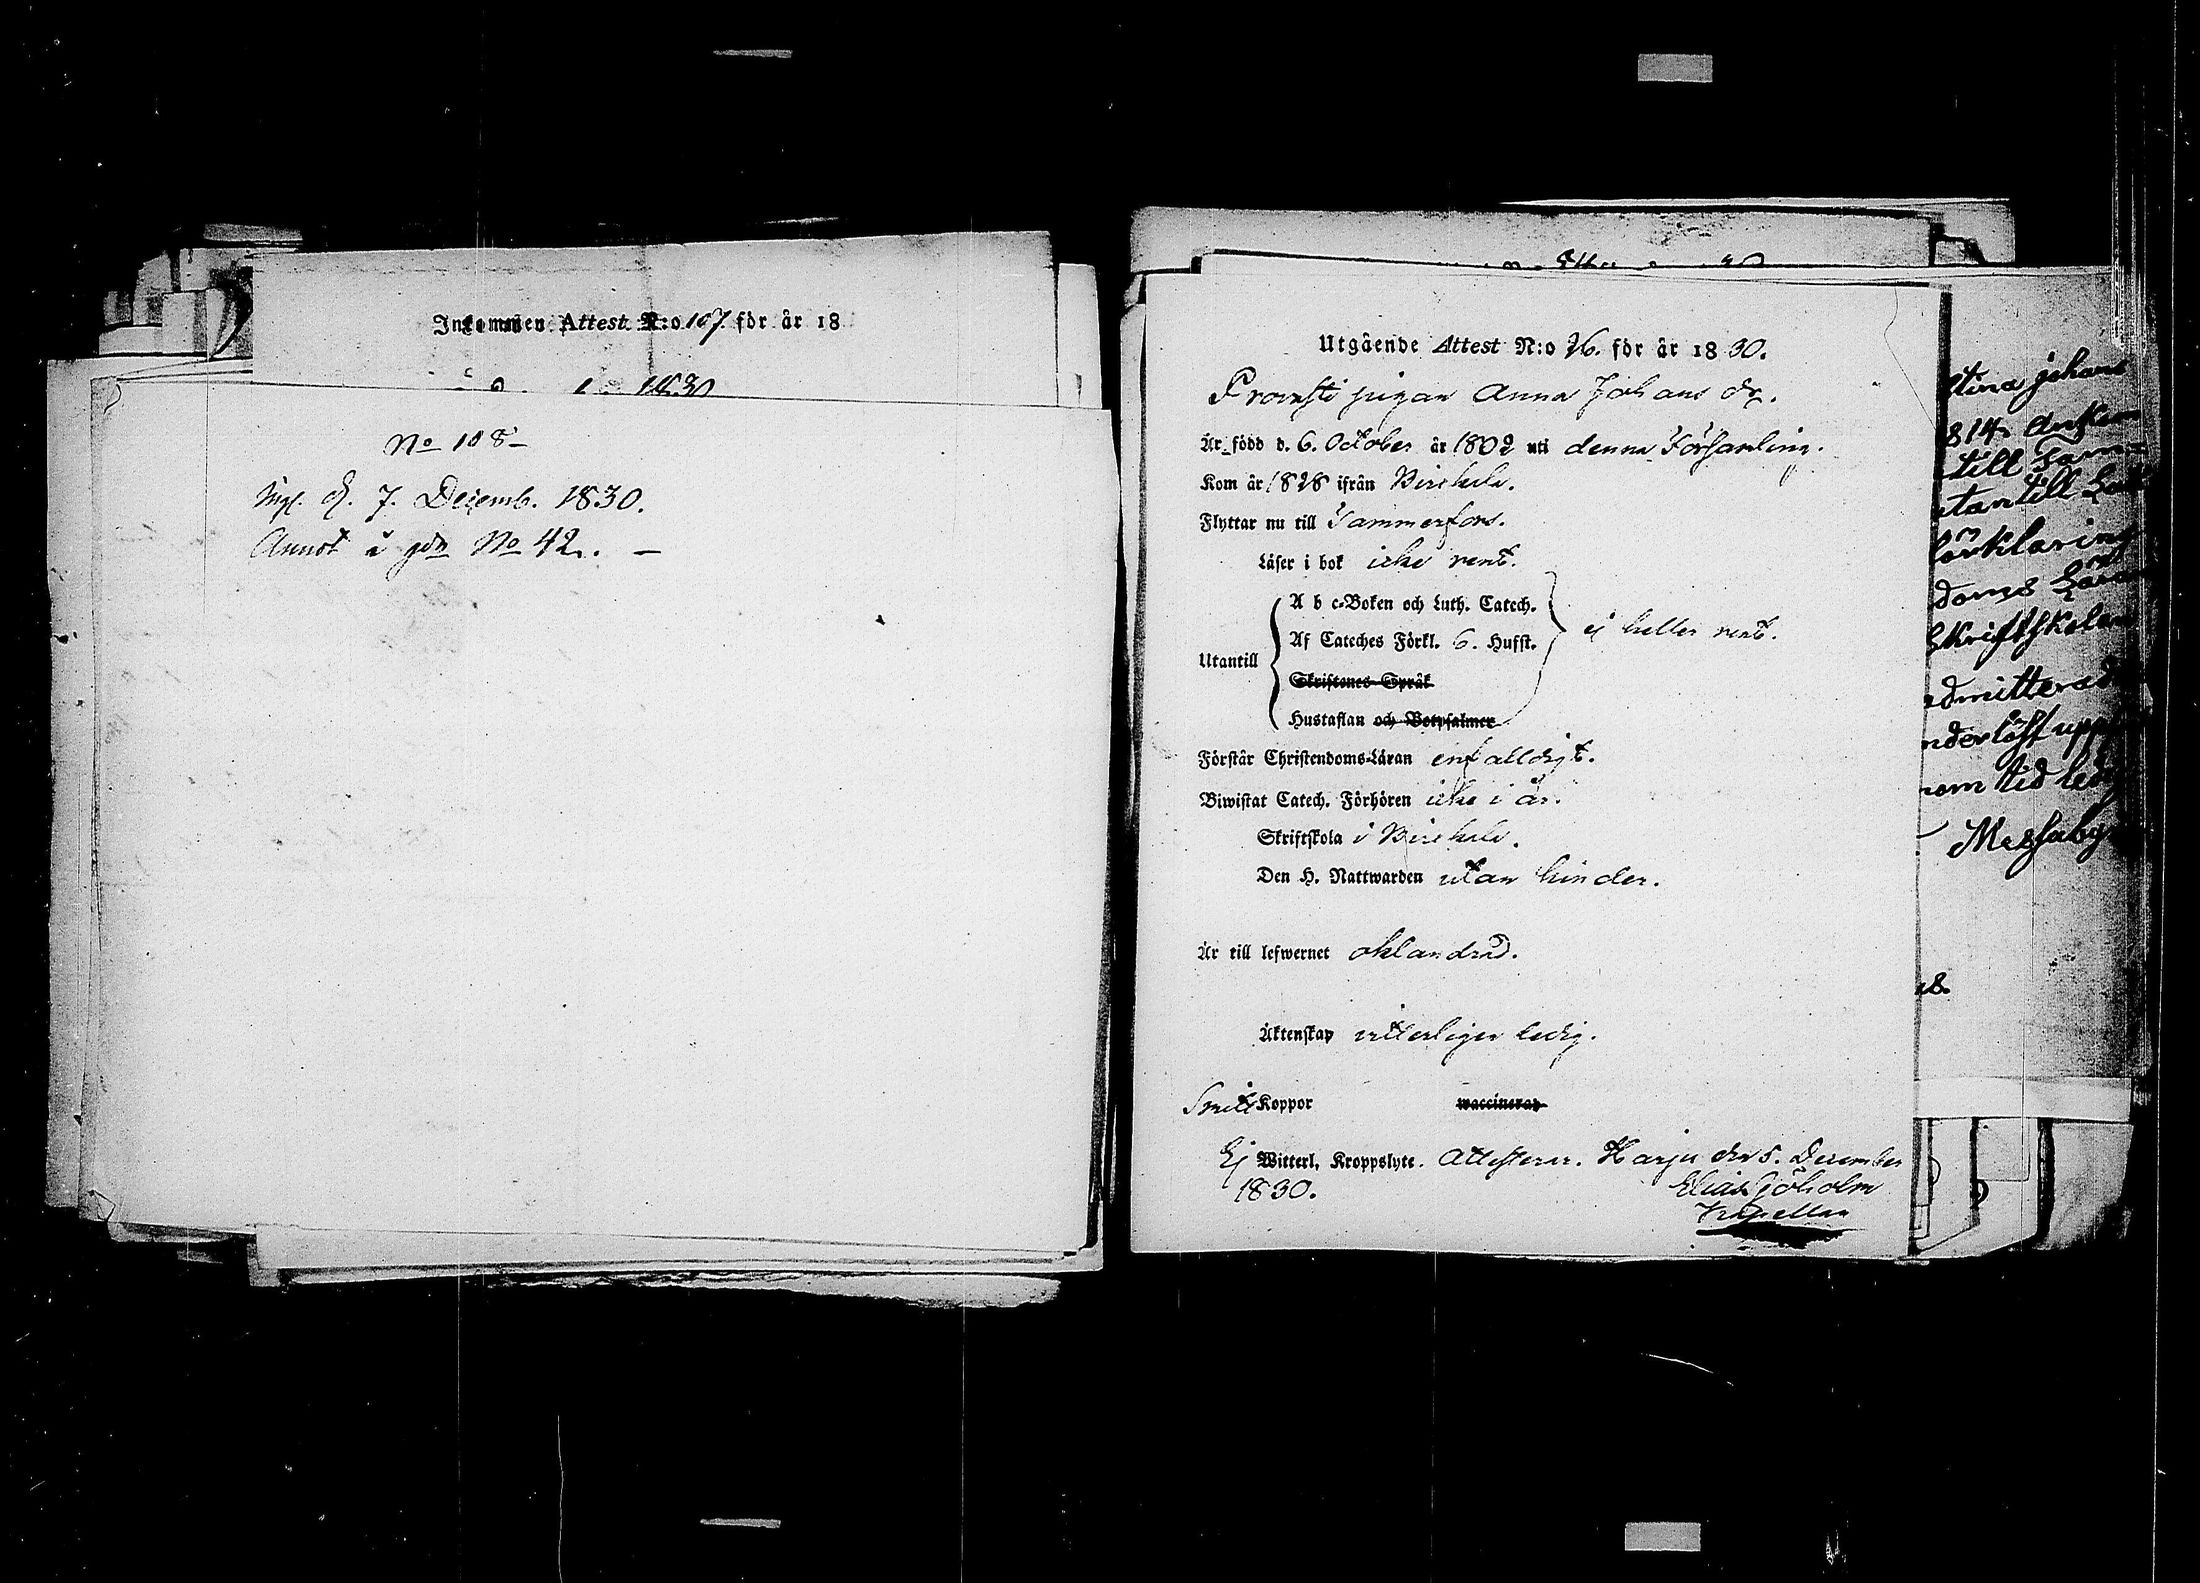 Inkommen Attest N:o 107. för år 18
1830
No 108-
Ing. d. 7. Decemb. 1830.
Annot i gdn No 42. —
Utgående Attest N:o 26. för år 1830.
Provsti pigan Anna Johans dr.
Är född d. 6. October år 1802 uti denna Församling.
Kom år 1828 ifrån Birckala.
Flyttar nu till Tammerfors.
Läser i bok icke rent.
A b c-Boken och Luth. Catech.
Af Cateches Förkl. 6. Hufst.
ej heller rent.
Utantill
Skriftenes Språk
Hustaflan och Botpsalmer
Förstår Christendoms-Läran enfalldigt.
Biwistat Catech. Förhören icke i år.
Skriftskola i Birckala.
Den H. Nattwarden utan hinder.
Är till lefwernet oklandrad.
Äktenskap witterligen ledig.
Koppor waccinerad
Ej Witterl. Kroppslyte. Attesterar. Harju den 5. December
1830. Elias Sjöholm
Kapellan
stina johans
814. Ankom
till samma
utantill
förklaring
doms Läran
Skriftskolan
admitterad
nom tid ledig
Messuby